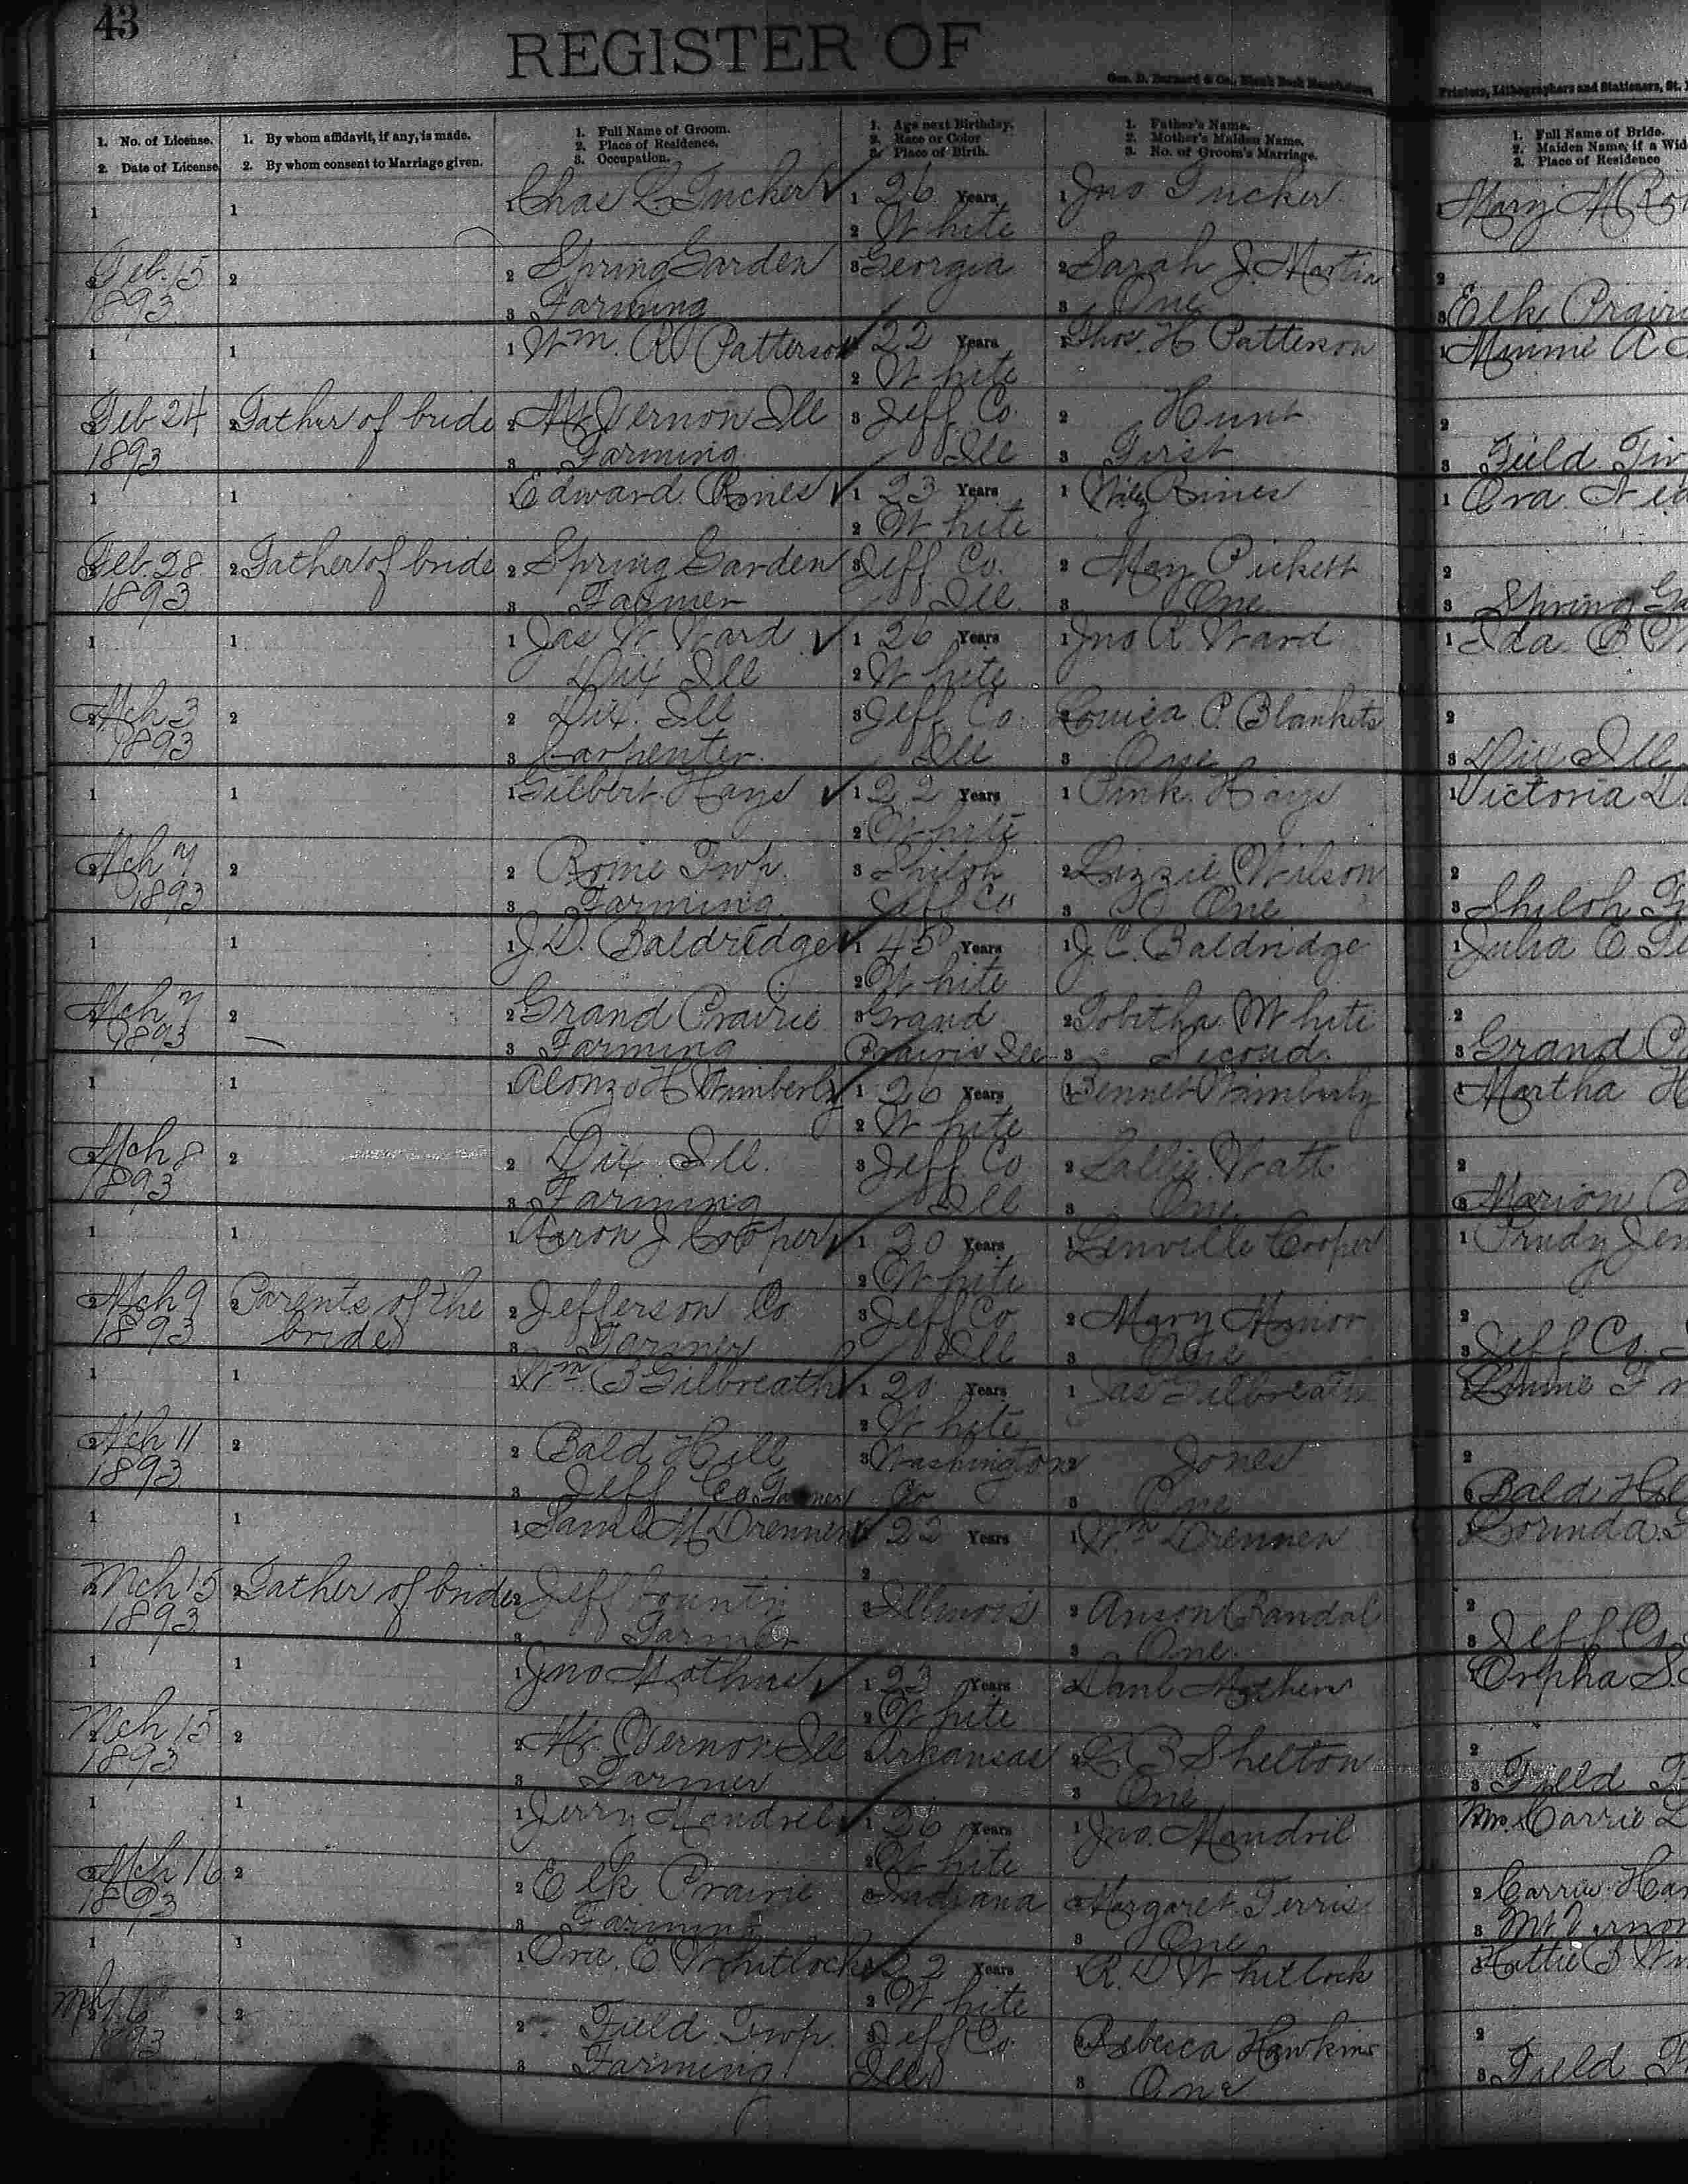 43
REGISTER OF
Geo. D. Barnard & Co., Blank Book Manufacturers,
Printers, Lithographers and Stationers, St.
1. No. of License.
2. Date of License.
1. By whom affidavit, if any, is made.
2. By whom consent to Marriage given.
1. Full Name of Groom.
2. Place of Residence.
3. Occupation.
1. Age next Birthday.
2. Race or Color
3. Place of Birth.
1. Father's Name.
2. Mother's Maiden Name.
3. No. of Groom's Marriage.
1. Full Name of Bride.
2. Maiden Name, if a Wid
3. Place of Residence
1 1 1 Chas L Tucker ✓ 1 26 Years 1 Jno Tucker 1 Mary M Ro
2 White
2 Feb. 15 2 2 Spring Garden 3 Georgia 2 Sarah J. Martin 2
1893 3 Farming 3 One 3 Elk Prairi
1 1 1 Wm. R Patterson ✓ 22 Years 1 Thos. H Patterson 1 Minnie A
2 White
2 Feb 24 2 Father of bride 2 Mt Vernon Ill 3 Jeff Co. 2 Hunt 2
1893 3 Farming Ill 3 First 3 Field
1 1 1 Edward Rines ✓ 1 23 Years 1 Rines 1 Ora
2 White
2 Feb. 28 2 Father of bride 2 Spring Garden 3 Jeff Co. 2 May Pickett 2
1893 3 Farmer Ill. 3 One 3 Spring Ga
1 1 1 Jas W Ward ✓ 1 26 Years 1 Jno R Ward 1 Ida B
Dix Ill 2 White
2 Mch 3 2 2 Dix. Ill 3 Jeff Co. 2 Louisa P. Blankits 2
1893 3 Carpenter. Ill 3 One 3 Dix Ill
1 1 1 Gilbert Hays ✓ 1 22 Years 1 Pink Hays 1 Victoria
2 White
2 Mch 7 2 2 Rome Twp. 3 Shiloh 2 Lizzie Wilson 2
1893 3 Farming Jeff Co 3 One 3 Shiloh
1 1 1 J. D. Baldredge ✓ 1 45 Years 1 J. C. Baldridge 1 Julia E
2 White
2 Mch 7 2 2 Grand Prairie 3 Grand 2 Tobitha White 2
1893 3 Farming Prairie Ill 3 Second. 3 Grand
1 1 1 Alonzo H Wimberly ✓ 1 26 Years 1 Bennet Wimberly 1 Martha H
2 White
2 Mch 8 2 2 Dix Ill. 3 Jeff Co 2 Sallie Watt 2
1893 3 Farming Ill 3 One 3 Marion C
1 1 1 Aaron J Cooper ✓ 1 20 Years 1 Linville Cooper 1 Prudy Jen
2 White
2 Mch 9 2 Parents of the 2 Jefferson Co. 3 Jeff Co 2 Mary Manor 2
1893 bride 3 Farmer Ill 3 One 3 Jeff Co.
1 1 1 Wm B Gilbreath ✓ 1 20 Years 1 Jas Gilbreath 1
2 White
2 Mch 11 2 2 Bald Hill 3 Washington 2 Jones 2
1893 3 Jeff Co Farmer Co 3 One 3 Bald Hil
1 1 1 Saml M Drennen ✓ 1 22 Years 1 Wm Drennen 1 Corinda
2
2 Mch 15 2 Father of bride 2 Jeff County 3 Illinois 2 Anson Randal 2
1893 3 Farmer 3 One. 3 Jeff Co.
1 1 1 Jno Mathis ✓ 1 23 Years 1 Danl 1 Orpha S.
2 White
2 Mch 15 2 2 Mt. Vernon Ill 3 Arkansas 2 Shelton 2
1893 3 Farmer 3 One 3 Field
1 1 1 Jerry Mandrel ✓ 1 26 Years 1 Jno. Mandril 1 Mrs. Carrie L
2 White
2 Mch 16 2 2 Elk Prairie 3 Indiana 2 Margaret Ferris 2 Carrie Ha
1893 3 Farming 3 One 3 Mt Vernon
1 1 1 Ora. E. Whitlock ✓ 22 Years 1 R. D Whitlock 1 Hattie B
2 White
2 Mch 16 2 2 Field Twp. 3 Jeff Co. 2 Rebecca Hawkins 2
1893 3 Farming Ills 3 One 3 Field